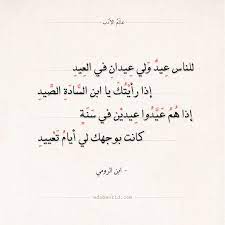 عالم الأدب
للناس عِيدٌ وَلي عِيدانِ في العِيدِ
إذا رأيتُكَ يا ابن السّادَةِ الصِّيدِ
إذا هُمُ عَيَّدُوا عِيديْنِ في سَنَةٍ
كانت بوجهك لي أيامُ تَعْييدِ
- ابن الرومي
adabworld.com